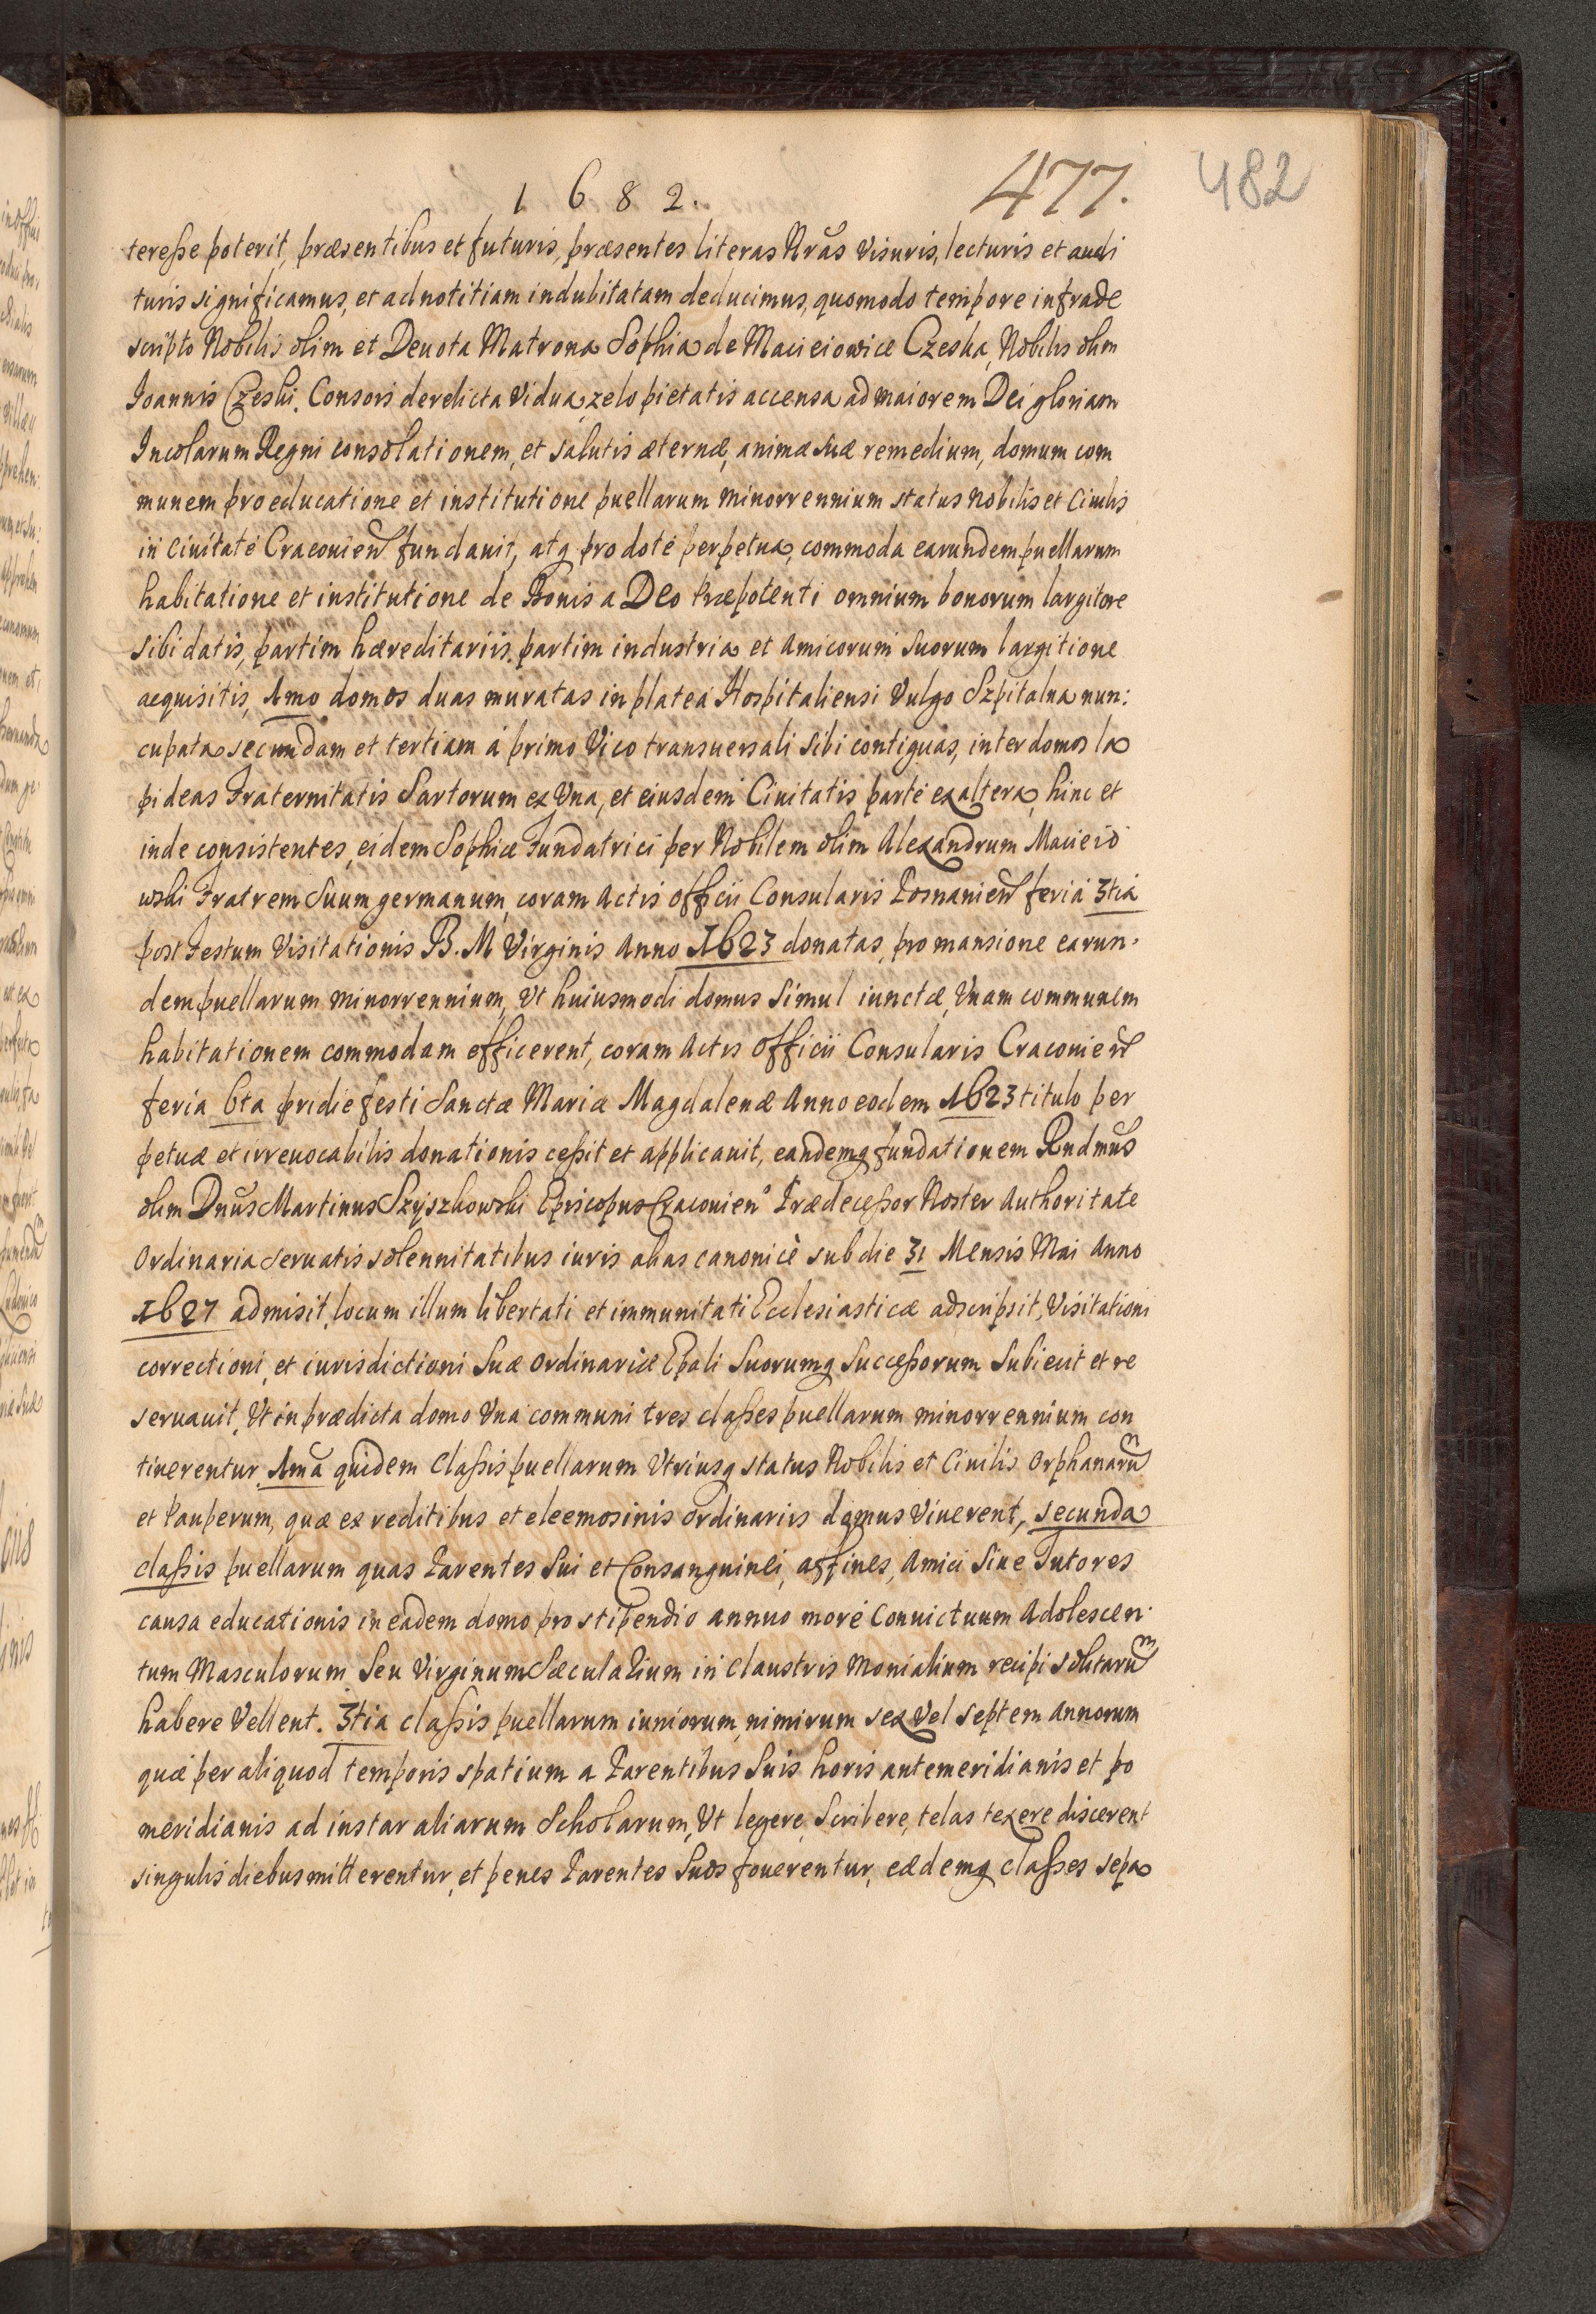 1682.
477.
482
teresse poterit, præsentibus et futuris, præsentes literas Nr̃as Visuris, lecturis et audi
turis significamus, et ad notitiam indubitatam deducimus, quomodo tempore infrade
scripto Nobilis olim et Deuota Matrona Sophia de Macieiowice Czeska, Nobilis olim
Ioannis Czeski. Consors derelicta Vidua, zelo pietatis accensa ad maiorem Dei gloriam
Incolarum Regni consolationem, et salutis æternæ, animæ suæ remedium, domum com
munem pro educatione et institutione puellarum minorrennium status nobilis et Ciuilis
in Ciuitate Craconien̄ fundauit, atq pro dote perpetua, commoda earundem puellarum
habitatione et institutione de Bonis a Deo Præpotenti omnium bonorum largitore
sibi datis, partim hæreditariis, partim industria et Amicorum Suorum largitione
acquisitis, 1mo domos duas muratas in platea Hospitaliensi Vulgo Szpitalna nun:
cupata secundam et tertiam á primo Vico transuersali sibi contiguas, inter domos la
pideas Fraternitatis Sartorum ex Vna, et eiusdem Ciuitatis parte ex altera, hinc et
inde consistentes, eidem Sophiæ Fundatrici per Nobilem olim Alexandrum Macieio
wski Fratrem Suum germanum, coram Actis Officii Consularis Posnanien̄ feria 3tia
post Festum Visitationis B. M Virginis Anno 1623 donatas, pro mansione earun-
dem puellarum minorrennium, Vt huiusmodi domus simul iunctæ, Vnam communem
habitationem commodam efficerent, coram Actis Officii Consularis Craconien̄
feria 6ta pridie festi Sanctæ Mariæ Magdalenæ Anno eodem 1623 titulo per
petuæ et irreuocabilis donationis cessit et applicauit, eandemq fundationem Rndmũs
olim Dnũs Martinus Szyszkowski Episcopus Craconien° Prædecessor Noster Authoritate
Ordinaria Seruatis solennitatibus iuris alias canonicè sub die 31 Mensis Mai Anno
1627 admisit, locum illum libertati et immunitati Ecclesiasticæ adscripsit, Visitationi
correctioni, et iurisdictioni Suæ Ordinariæ Epali Suorumq Successorum Subiecit et re
seruauit, Vt in prædicta domo Vna communi tres classes puellarum minorrennium con
tinerentur, 1ma quidem Classis puellarum Vtriusq status Nobilis et Ciuilis Orphanarũ
et Pauperum, quæ ex reditibus et eleemosinis ordinariis domus Viuerent, secunda
classis puellarum quas Parentes Sui et Consanguinei, affines, Amici Siue Tutores
causa educationis in eadem domo pro stipendio annuo more Conuictuum Adolescen-
tum Masculorum Seu Virginum Sæcularium in claustris Monialium recipi solitarũ
habere Vellent. 3tia classis puellarum iuniorum, nimirum sex Vel Septem Annorum
quæ per aliquod temporis spatium a Parentibus Suis horis antemeridianis et po
meridianis ad instar aliarum Scholarum, Vt legere, Scribere, telas texere discerent
singulis diebus mitterentur, et penes Parentes Suos fouerentur, eædemq classes sepa